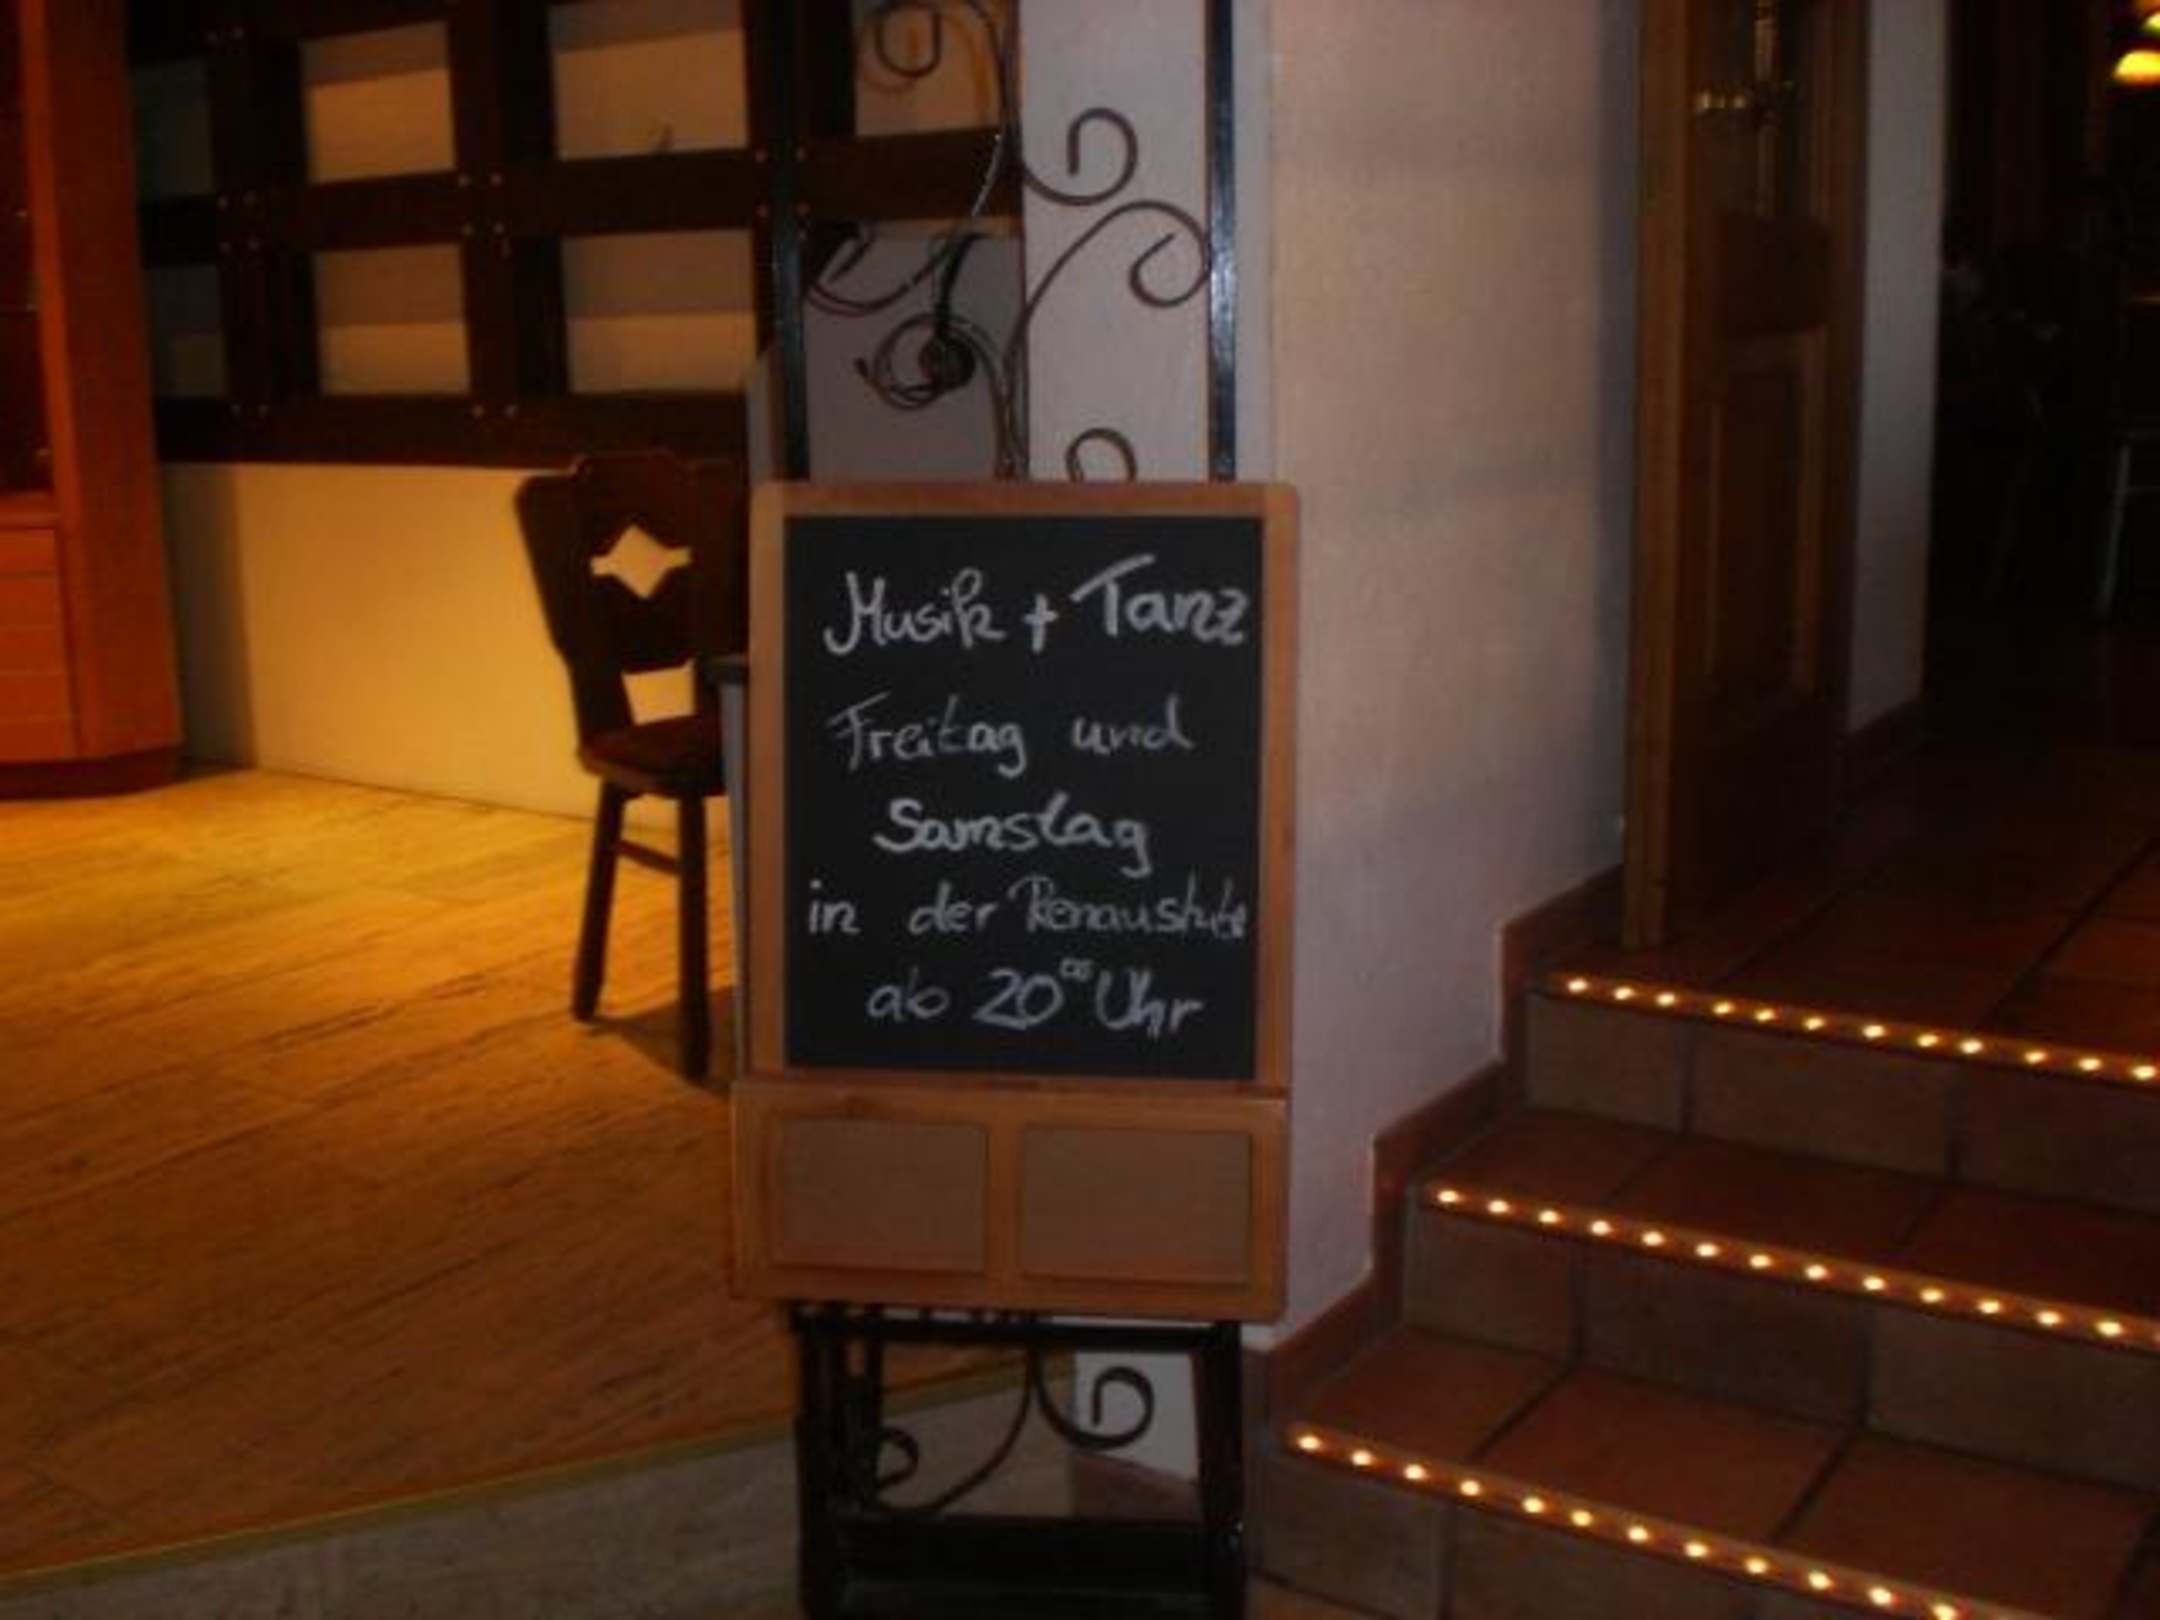 Musik + Tanz
Freitag und
Samstag
in der
ab 20⁰⁰ Uhr